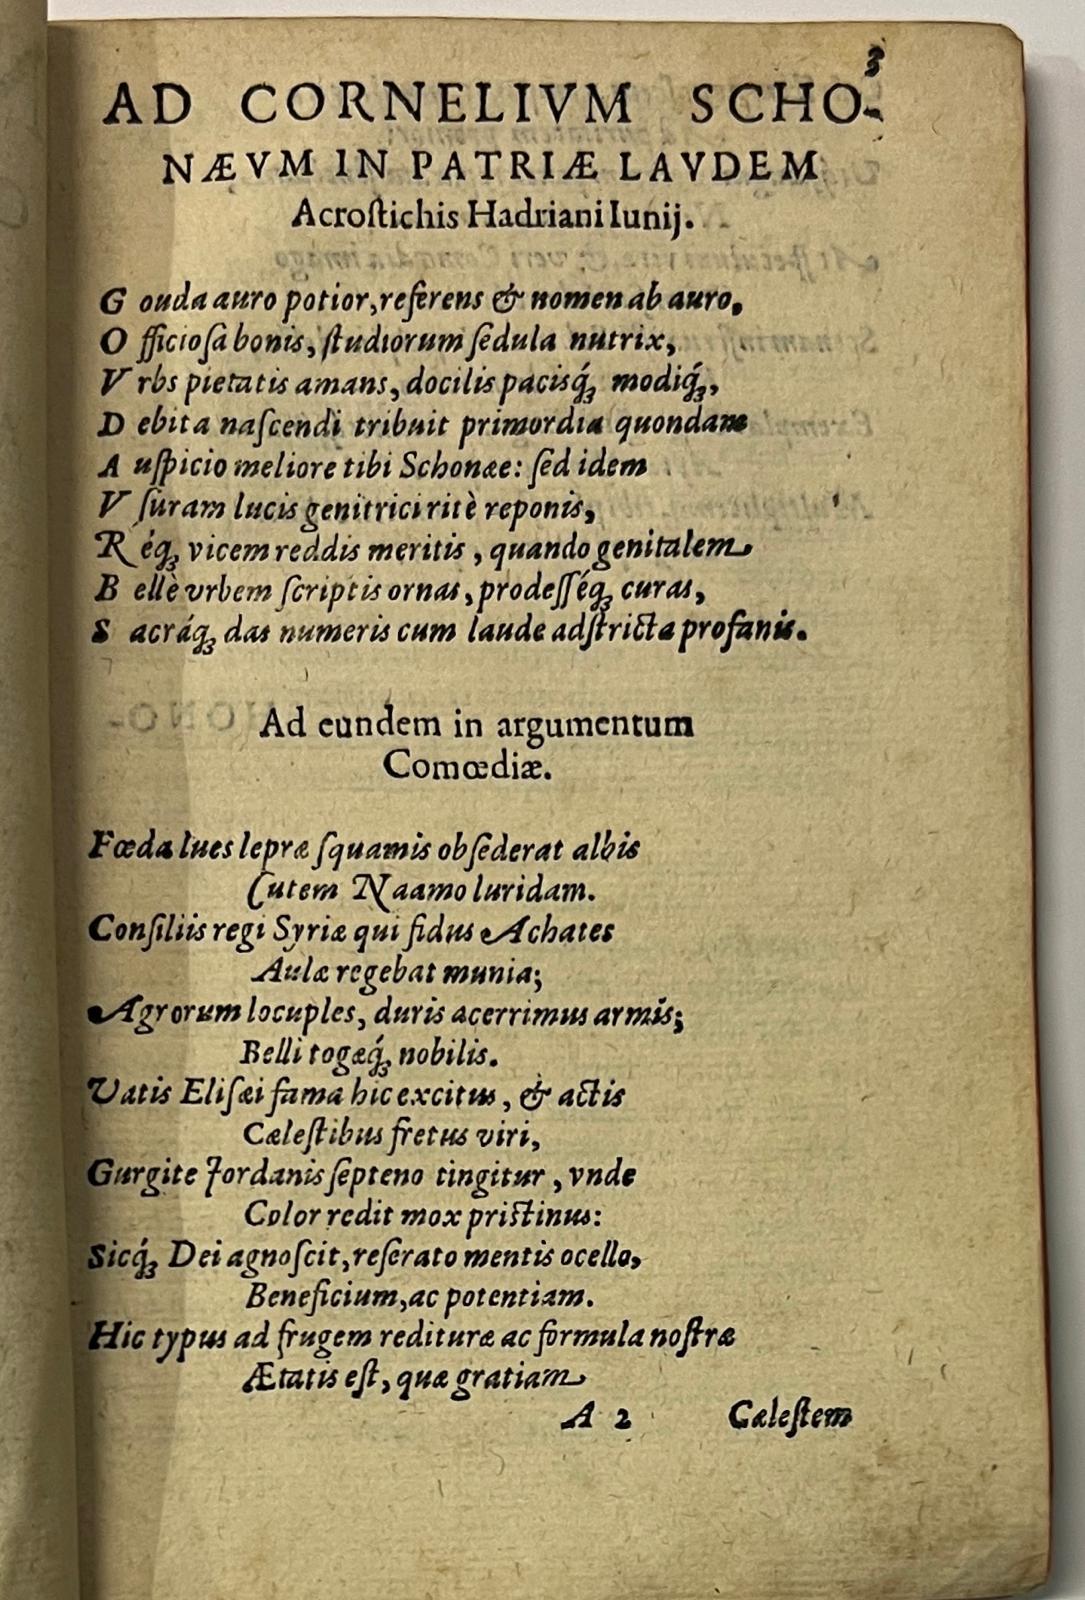 3
AD CORNELIVM SCHO-
NÆVM IN PATRIÆ LAVDEM
Acroſtichis Hadriani Iunij.
G ouda auro potior, referens & nomen ab auro,
O fficioſa bonis, ſtudiorum ſedula nutrix,
V rbs pietatis amans, docilis pacisq́ꝫ modiq́ꝫ,
D ebita naſcendi tribuit primordia quondam
A uſpicio meliore tibi Schonæe: ſed idem
V ſuram lucis genitrici ritè reponis,
R éqꝫ vicem reddis meritis, quando genitalem
B ellè vrbem ſcriptis ornas, prodeſſéqꝫ curas,
S acráqꝫ das numeris cum laude adſtricta profanis.
Ad eundem in argumentum
Comœdiæ.
Fœda lues lepræ ſquamis obſederat albis
Cutem Naamo luridam.
Conſiliis regi Syriæ qui fidus Achates
Aulæ regebat munia;
Agrorum locuples, duris acerrimus armis;
Belli togæq́ꝫ nobilis.
Vatis Eliſæi fama hic excitus, & actis
Cæleſtibus fretus viri,
Gurgite Jordanis ſepteno tingitur, vnde
Color redit mox priſtinus:
Sicq́ꝫ Dei agnoſcit, reſerato mentis ocello,
Beneficium, ac potentiam.
Hic typus ad frugem redituræ ac formula noſtræ
Ætatis eſt, quæ gratiam
A 2 Cæleſtem